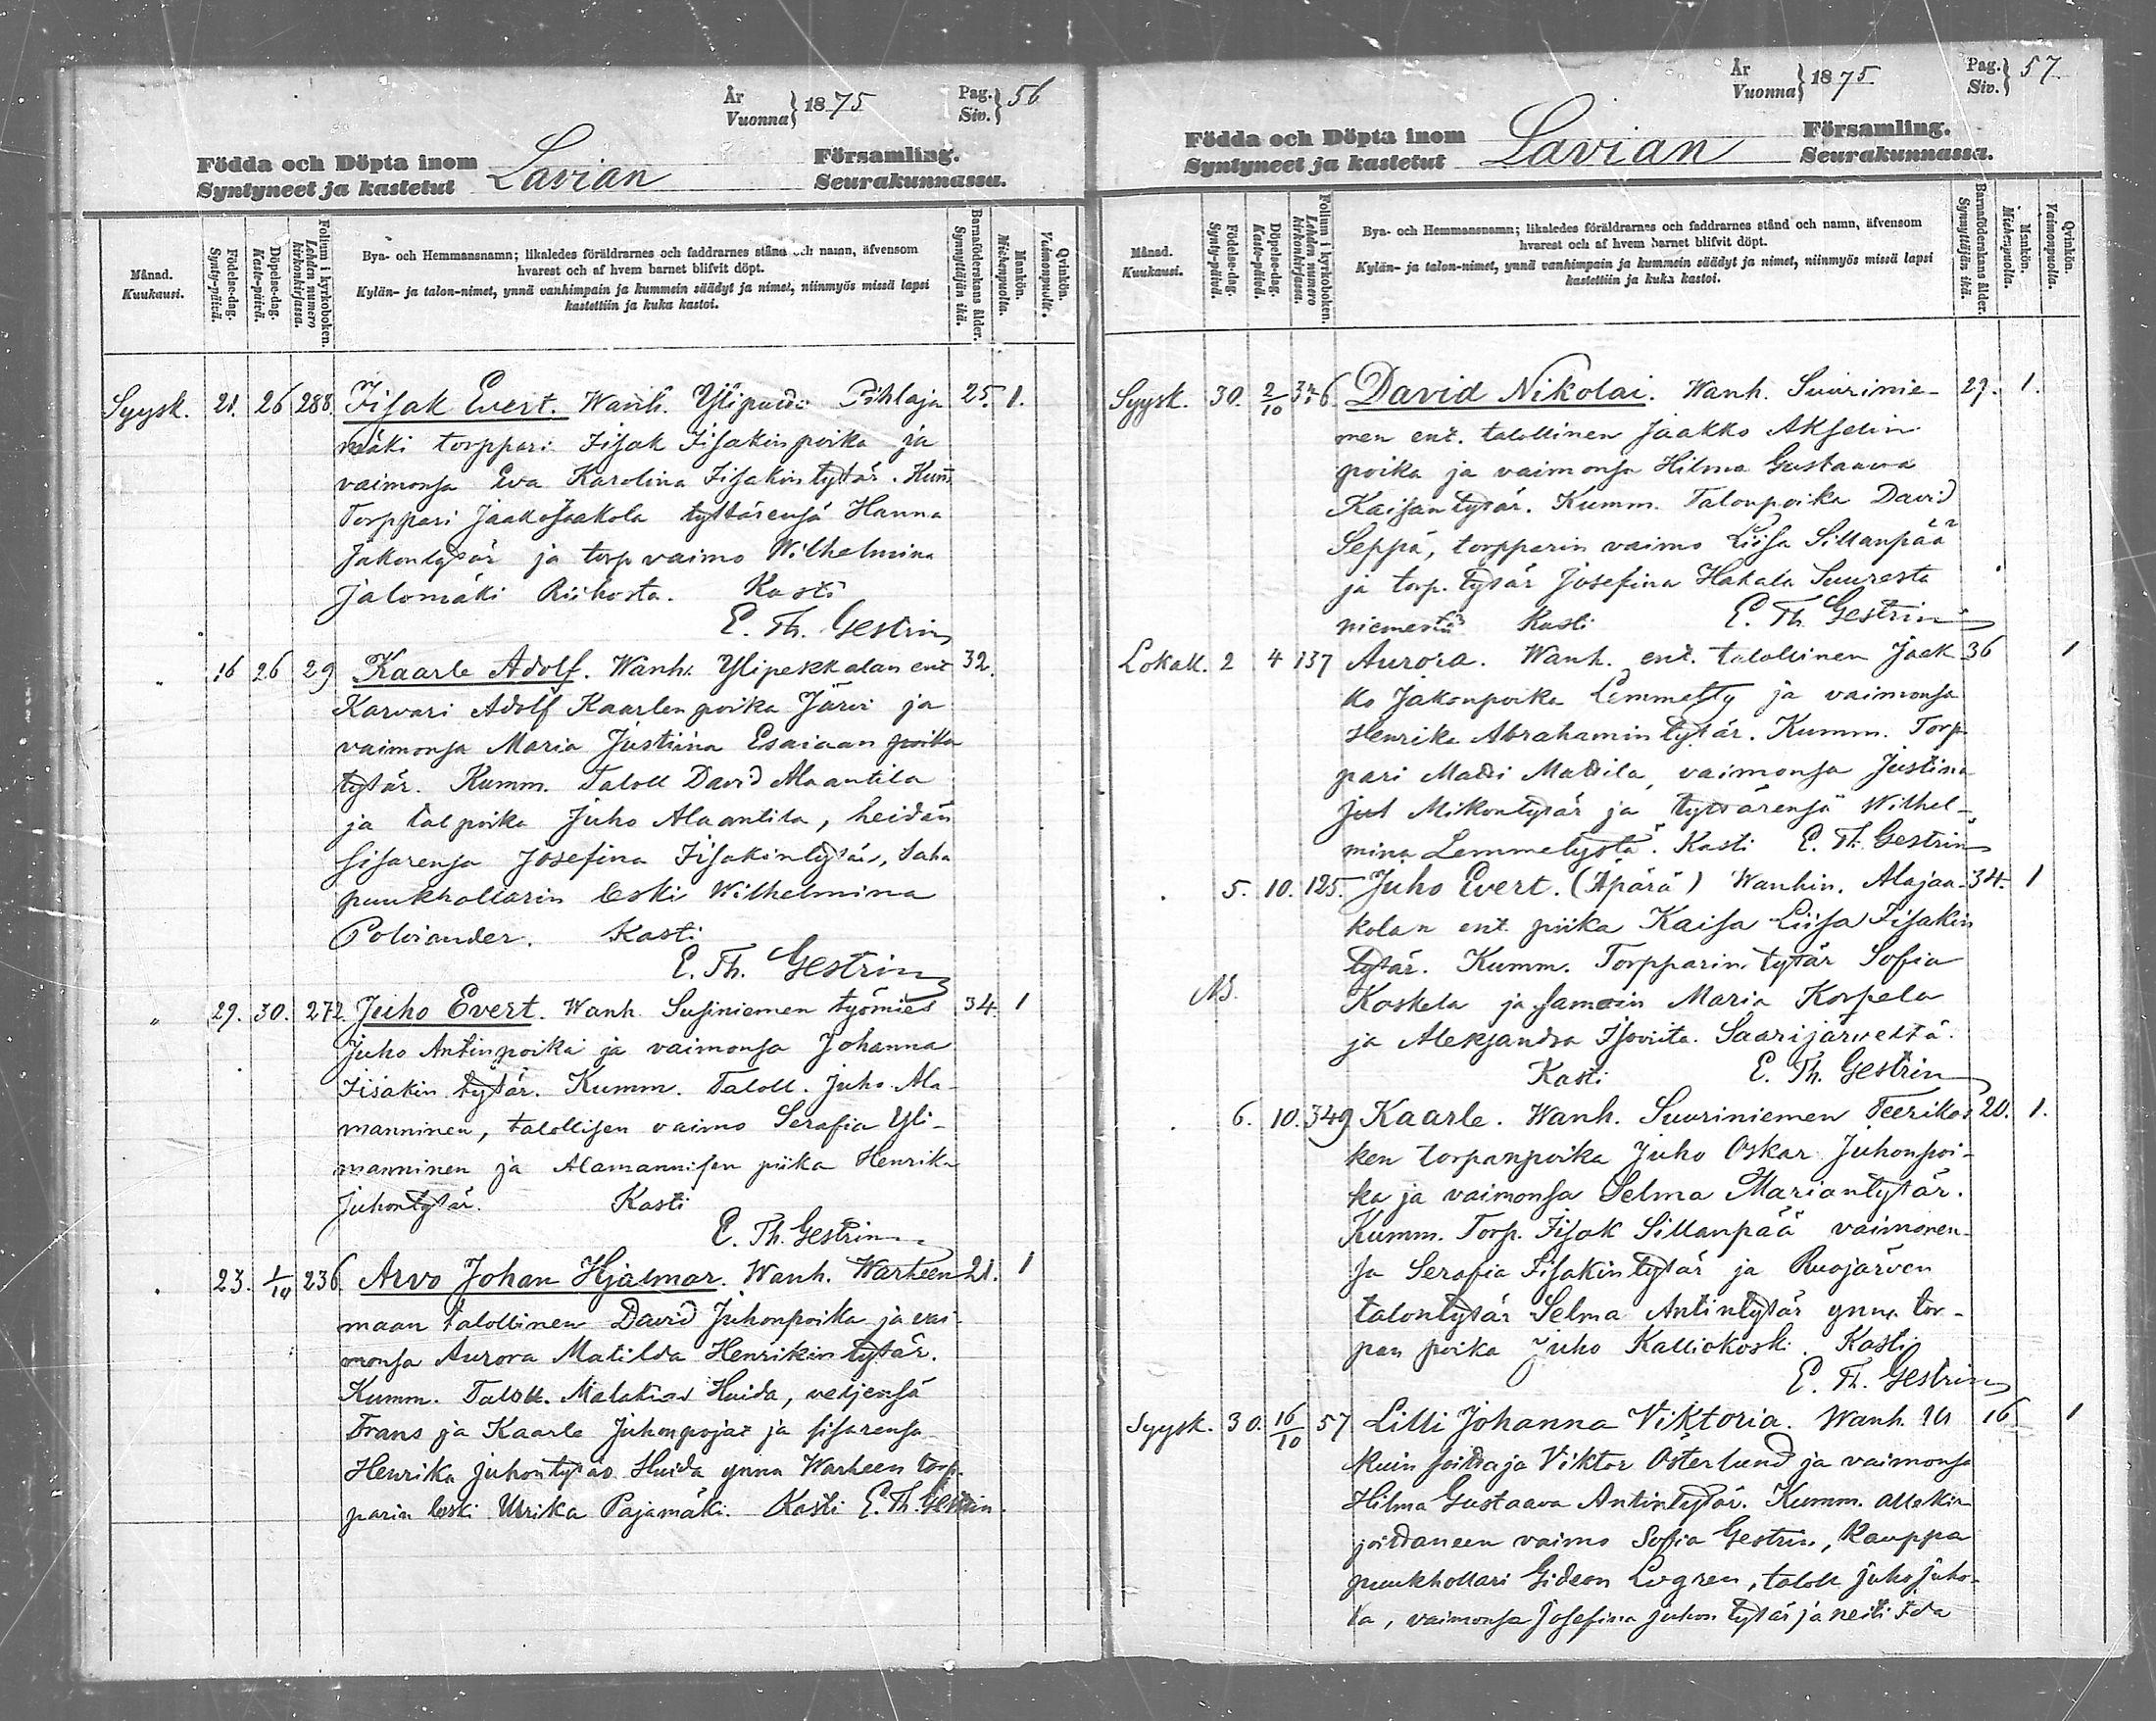 År
Vuonna } 1875
Pag.
Siv. } 56
Födda och Döpta inom Lavian Församling.
Syntyneet ja kastetut Seurakunnassa.
Månad.
Kuukausi.
Födelse-dag.
Synty-päivä.
Döpelse-dag.
Kaste-päivä.
Folium i kyrkoboken.
Lehden numero
kirkonkirjassa.
Bya- och Hemmansnamn; likaledes föräldrarnes och faddrarnes stånd och namn, äfvensom
hvarest och af hvem barnet blifvit döpt.
Kylän- ja talon-nimet, ynnä vanhimpain ja kummein säädyt ja nimet, niinmyös missä lapsi
kastettiin ja kuka kastoi.
Barnaföderskans ålder.
Synnyttäjän ikä.
Mankön.
Miehenpuolta.
Qvinkön.
Vaimonpuolta.
Syysk. 21. 26 288 Iisak Evert. Wanh. Pihlaja 25. 1.
mäki torppari Iisak Iisakinpoika ja
vaimonsa Eva Karolina Iisakintytär. Kum
Torppari Jaako Jaakola tyttärensä Hanna
Jakontytär ja torp vaimo Wilhelmina
Jalomäki Riihosta. Kasti
E. Th. Gestrin
" 16 26 29 Kaarle Adolf. Wanh. Ylipekkalan ent 32.
Karvari Adolf Kaarlen poika Järvi ja
vaimonsa Maria Justiina Esaiaan poika
tytär. Kumm. Taloll David Alaantila
ja tal poika Juho Alaantila, heidän
sisarensa Josefina Iisakintytär, saha
puukhollarin leski Wilhelmina
Polviander. Kasti
E. Th. Gestrin
" 29. 30. 272. Juho Evert. Wanh. Susiniemen työmies 34. 1
Juho Antinpoika ja vaimonsa Johanna
Iisakin tytär. Kumm. Taloll. Juho Ala-
manninen, talollisen vaimo Serafia Yli-
manninen ja Alamannisen piika Henrika
Juhontytär. Kasti
E. Th. Gestrin
. 23. 1/10 236. Arvo Johan Hjalmar. Wanh. Warheen 21. 1
maan talollinen David Juhonpoika ja vai-
monsa Aurora Matilda Henrikin tytär.
Kumm. Taloll. Malakias Huida, veljensä
Frans ja Kaarle Juhonpojat ja sisarensa
Henrika Juhontytär Huida ynnä Warheen torp-
parin leski Ulrika Pajamäki. Kasti E. Th. Gestrin.
År
Vuonna } 1875
Pag.
Siv. } 57
Födda och Döpta inom Lavian Församling.
Syntyneet ja kastetut Seurakunnassa.
Månad.
Kuukausi.
Födelse-dag.
Synty-päivä.
Döpelse-dag.
Kaste-päivä.
Folium i kyrkoboken.
Lehden numero
kirkonkirjassa.
Bya- och Hemmansnamn; likaledes föräldrarnes och faddrarnes stånd och namn, äfvensom
hvarest och af hvem barnet blifvit döpt.
Kylän- ja talon-nimet, ynnä vanhimpain ja kummein säädyt ja nimet, niinmyös missä lapsi
kastettiin ja kuka kastoi.
Barnaföderskans ålder.
Synnyttäjän ikä.
Mankön.
Miehenpuolta.
Qvinkön.
Vaimonpuolta.
Syysk. 30. 2/10 346 David Nikolai. Wanh. Suurinie- 29. 1.
men ent. talollinen Jaakko Akselin
poika ja vaimonsa Hilma Gustaava
Kaisantytär. Kumm. Talonpoika David
Seppä, torpparin vaimo Liisa Sillanpää
ja torp. tytär Josefina Hakala Suuresta
niemestä Kasti E. Th. Gestrin
Lokak. 2 4 137 Aurora. Wanh. ent. talollinen Jaak 36 1
ko Jakonpoika Lemmetty ja vaimonsa
Henrika Abrahamin tytär. Kumm. Torp-
pari Matti Mattila, vaimonsa Justina
Just Mikontytär ja tyttärensä Wilhel-
mina Lemmetystä. Kasti E. Th. Gestrin
. 5. 10. 125. Juho Evert. (Äpärä) Wanhin. Alajaa- 34. 1
kolan ent. piika Kaisa Liisa Iisakin
tytär. Kumm. Torpparin tytär Sofia
NB. Koskela ja samoin Maria Korpela
ja Aleksandra Saarijärveltä.
Kasti E. Th. Gestrin
. 6. 10. 349 Kaarle. Wanh. Suuriniemen Teerikos 20. 1.
ken torpanpoika Juho Oskar Juhonpoi-
ka ja vaimonsa Selma Mariantytär.
Kumm. Torp. Iisak Sillanpää vaimonen-
sa Serafia Iisakintytär ja Ruojärven
talontytär Selma Antintytär ynnä tor-
pan poika Juho Kalliokoski. Kasti
E. Th. Gestrin
Syysk. 30. 16/10 57 Lilli Johanna Viktoria. Wanh. Ur 16 1
kuin soittaja Viktor Österlund ja vaimonsa
Hilma Gustaava Antintytär. Kumm.
vaimo Sofia Gestrin, Kauppa
puukhollari Gideon Lvgren, taloll Juho Juho-
la, vaimonsa Josefina Juhon tytär ja neiti Ida